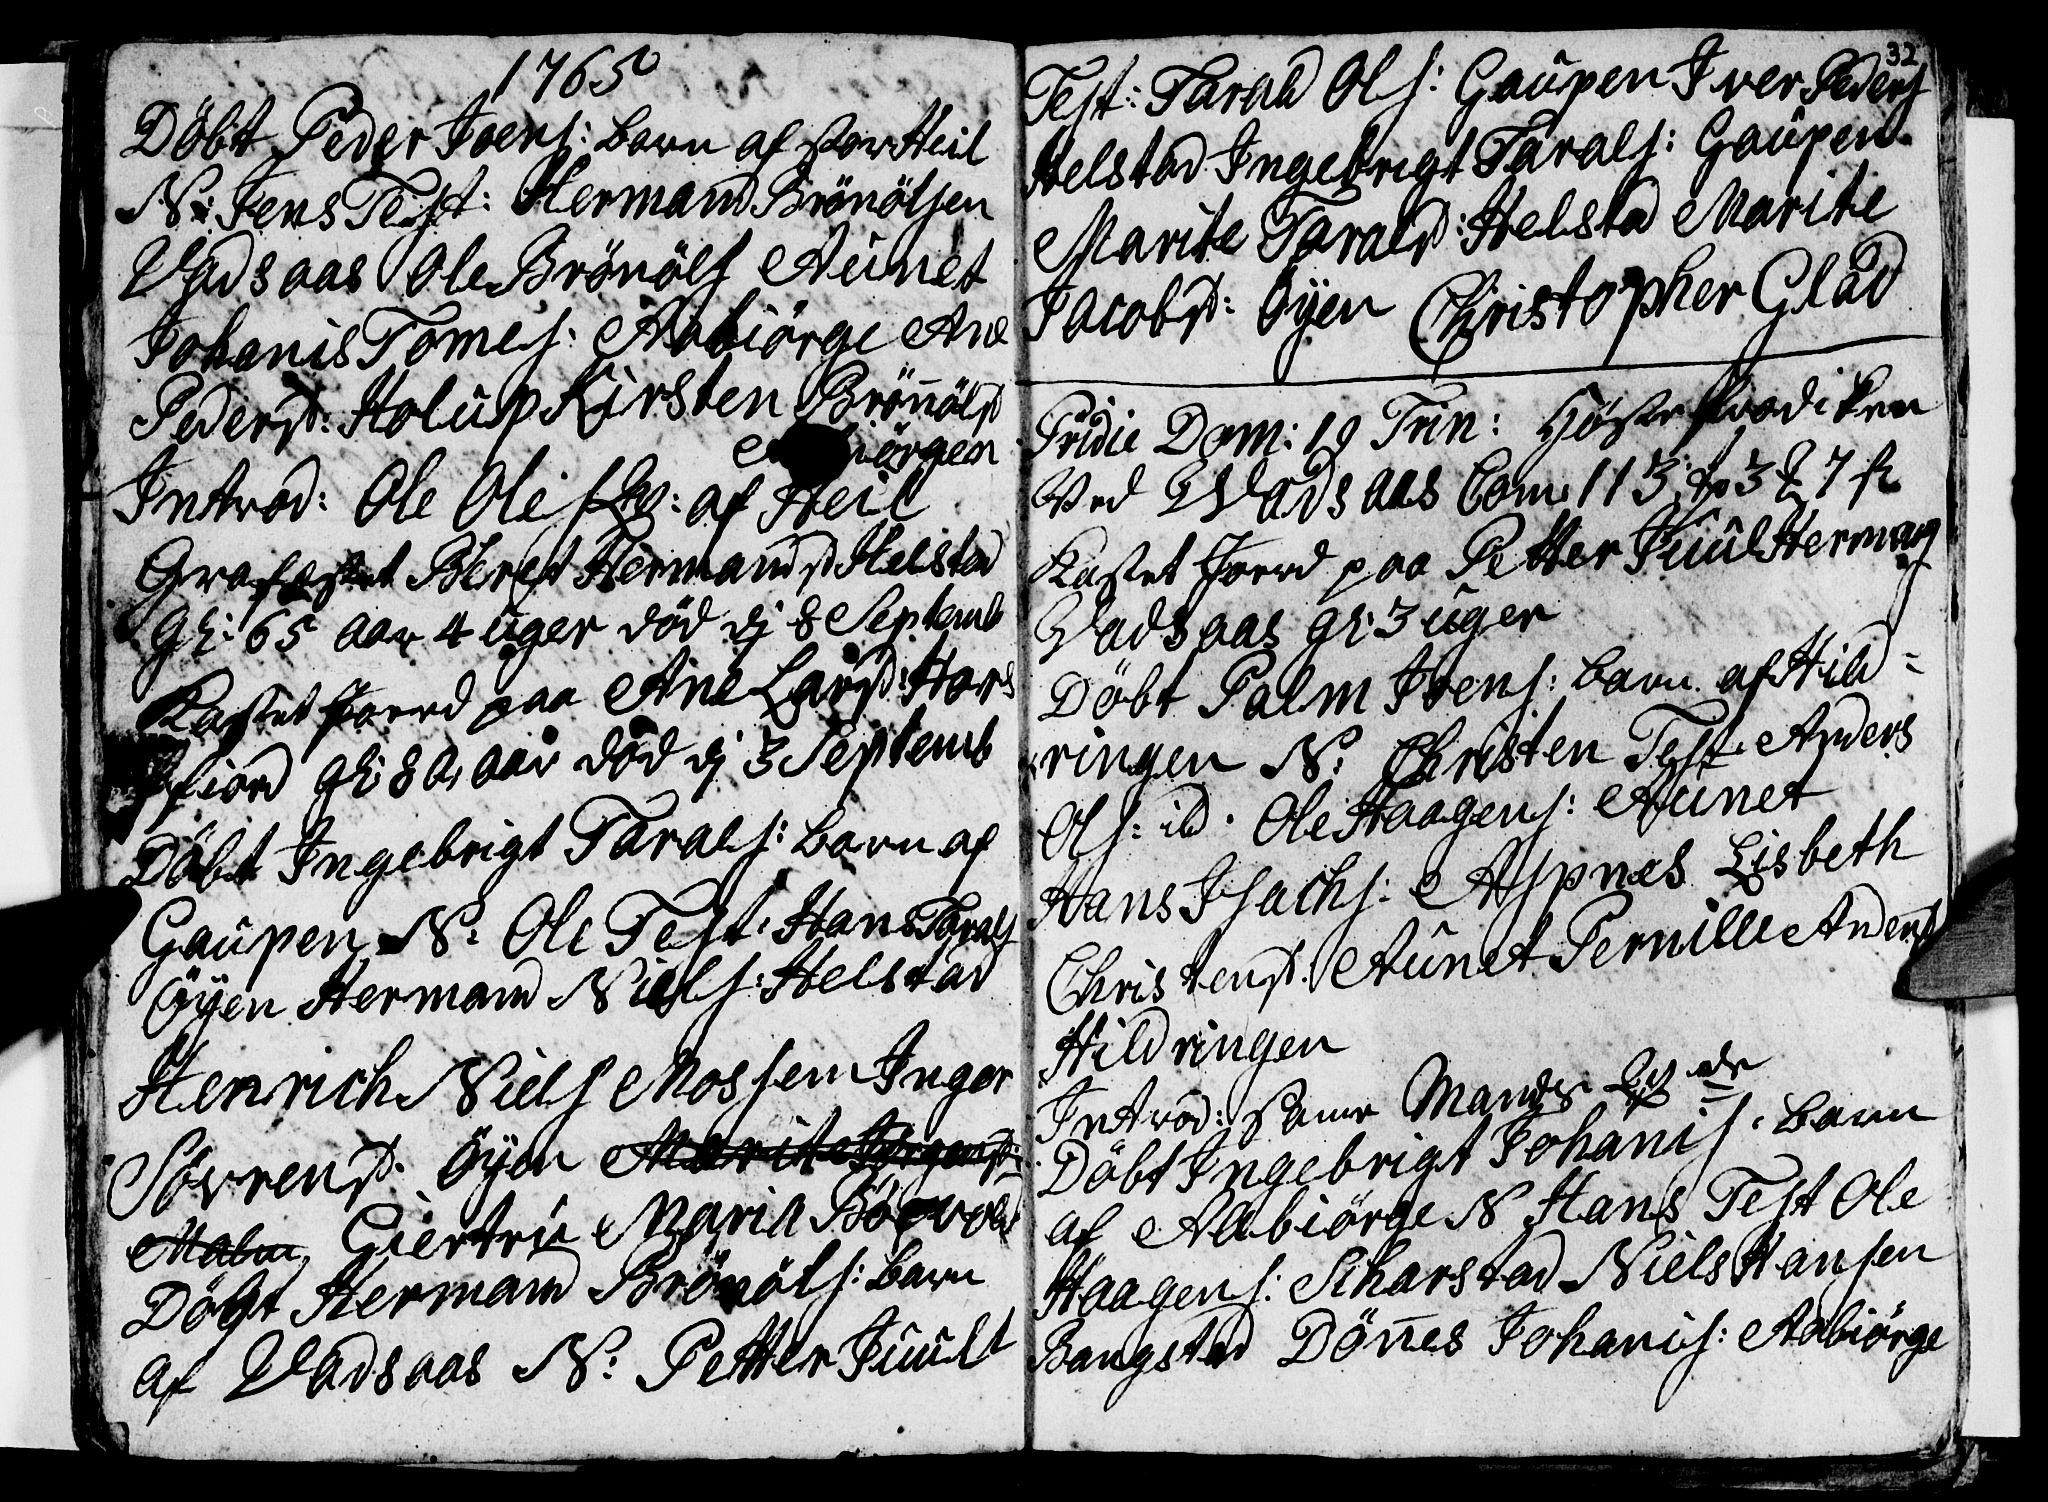 1765
Döbt Peder Joens: barn af stor Heil
N: Jens Test: Hermand Brönölsen
Vadsaas Ole Brönöls Aünet
Johanis Tomes: Aabiörge Ane
Peders: Holüp Kirsten Brönnöls
Aabiörgen
Introd: Ole Oles af Heil
Grafæstet Beret Hermands Helstad
gl: 65 aar 4 üger död dj 8 Septemb
Kastet Joord paa Ane Lars: Hors
fiord gl: 80 aar död dj 3 Septemb
Döbt Ingebrigt Tarals: barn af
Gaüpen N: Ole Test: Hans Tarals
Öyen Hermand Niels: Helstad
Henrich Niels Mossem Inger
Sörrens: Öyen Marite Jörgens:
Malm Giertrü Maria Böevold
Döbt Hermand Brönöls: barn
af Vadsaas N: Petter Juult
32
Test: Tarald Ols: Gaüpen Iver Peders
Helstad Ingebrigt Tarals: Gaüpen
Marite Tarals: Helstad Marite
Jacobs: Öyen Christopher Glad
Pridie Dom: 19 Trin: Höste Prædiken
Ved Vadsaas Com: 113
Kastet Joord paa Petter Juul Hermans
Vadsaas gl: 3 üger
Döbt Palm Joens: barn af Hild=
ringen N: Christen Test: Anders
Ols: ibd: Ole Haagens: Aünet
Hans Isachs: Aspnes Lisbeth
Christens: Aünet Pernille Anders
Hildringen
Introd: samme Mands
Döbt Ingebrigt Johanis: barn
af Aabiörge N Hans Test Ole
Haagens: Skarstad Niels Hansen
Bangstad Dönnes Johanis: Aabiörge